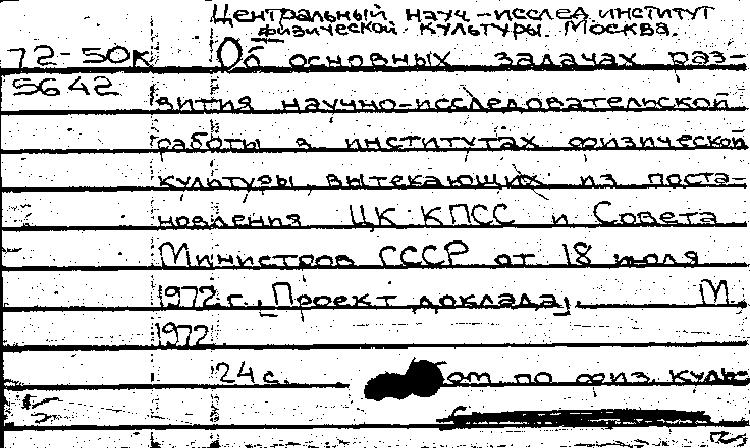 Центральный науч-исслед институт
физической культуры. Москва.
72-50к Об основных задачах раз-
5642
вития научно-исследовательской
работы в институтах физической
культуры, вытекающих из поста-
новления ЦК КПСС и Совета
Министров СССР от 18 июля
1972 г. [Проект доклада]. М.
1972
24 с. ком. по физ. куль-